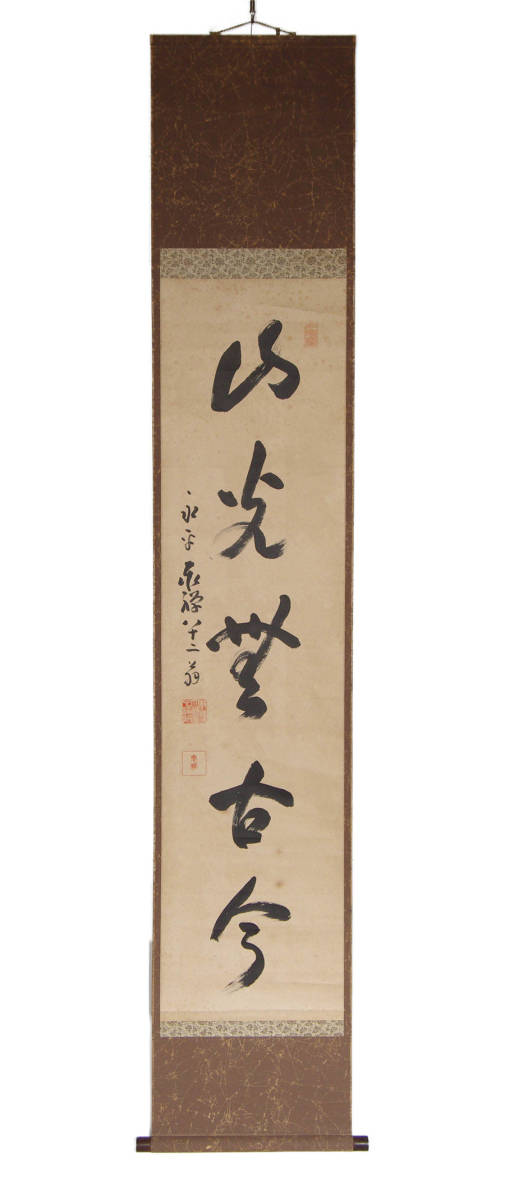 山光無古今
永平泰禅八十二翁